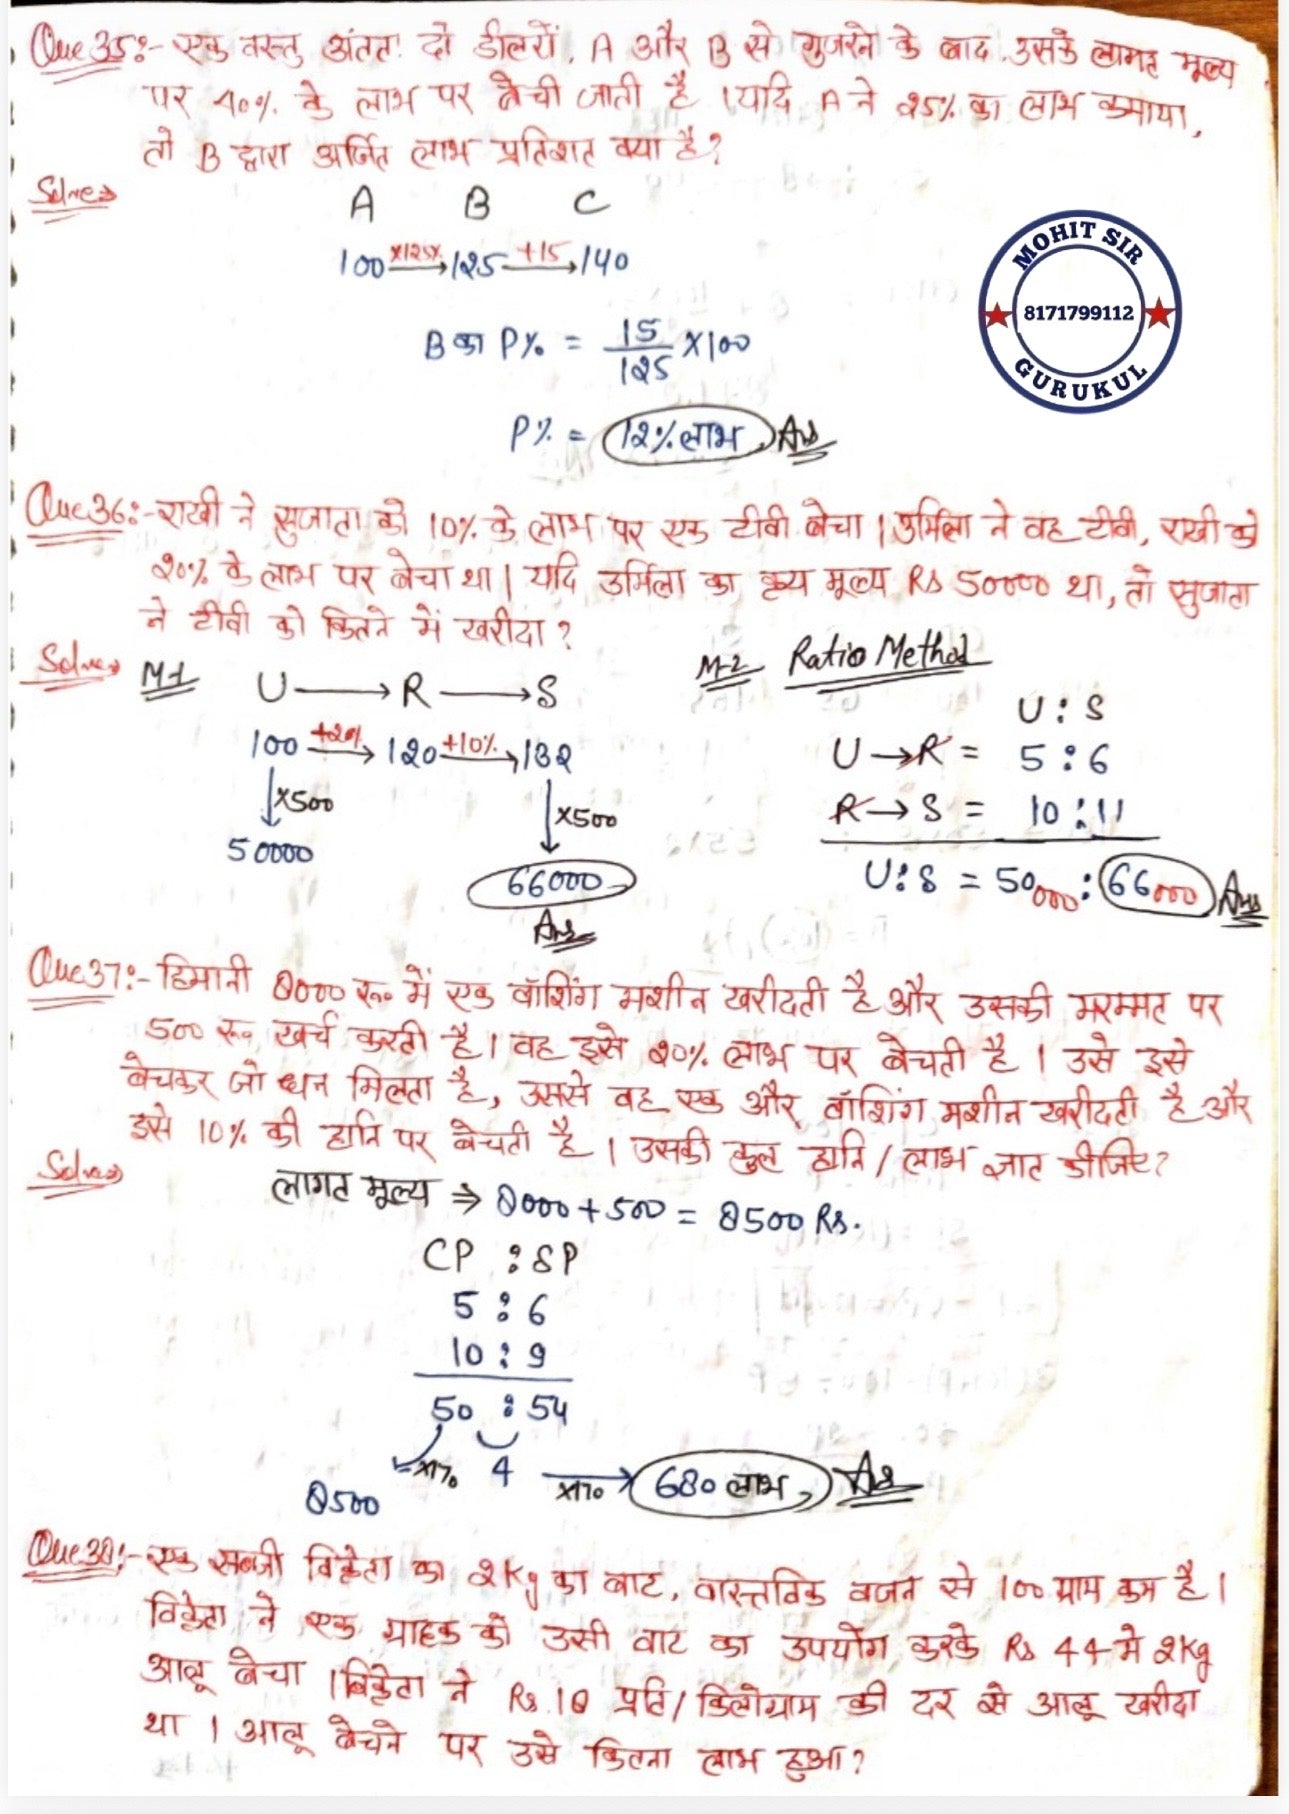 Que 35:- एक वस्तु अंततः दो डीलरों, A और B से गुजरने के बाद उसके लागत मूल्य
पर 40% के लाभ पर बेची जाती है । यदि A ने 25% का लाभ कमाया,
तो B द्वारा अर्जित लाभ प्रतिशत क्या है?
Solve⇒
A B C
100 ×125% → 125 +15 → 140
MOHIT SIR
8171799112
GURUKUL
B का P% = 15/125 × 100
P% = 12% लाभ Ans
Que 36:- राखी ने सुजाता को 10% के लाभ पर एक टीवी बेचा । उर्मिला ने वह टीवी, राखी को
20% के लाभ पर बेचा था। यदि उर्मिला का क्रय मूल्य Rs 50000 था, तो सुजाता
ने टीवी को कितने में खरीदा ?
Solve⇒ M-1 U → R → S
100 +20% → 120 +10% → 132
↓ ×500 ↓ ×500
50000 66000
Ans
M-2 Ratio Method
U : S
U → R = 5 : 6
R → S = 10 : 11
U : S = 50000 : 66000 Ans
Que 37:- हिमानी 8000 रू० में एक वॉशिंग मशीन खरीदती है और उसकी मरम्मत पर
500 रू० खर्च करती है। वह इसे 20% लाभ पर बेचती है । उसे इसे
बेचकर जो धन मिलता है, उससे वह एक और वॉशिंग मशीन खरीदती है और
इसे 10% की हानि पर बेचती है । उसकी कुल हानि / लाभ ज्ञात कीजिए?
Solve⇒
लागत मूल्य ⇒ 8000 + 500 = 8500 Rs.
CP : SP
5 : 6
10 : 9
50 : 54
×170 4 ×170 → 680 लाभ Ans
8500
Que 38:- एक सब्जी विक्रेता का 2Kg का बाट, वास्तविक वजन से 100 ग्राम कम है।
विक्रेता ने एक ग्राहक को उसी बाट का उपयोग करके Rs 44 में 2Kg
आलू बेचा । विक्रेता ने Rs 18 प्रति/ किलोग्राम की दर से आलू खरीदा
था । आलू बेचने पर उसे कितना लाभ हुआ ?